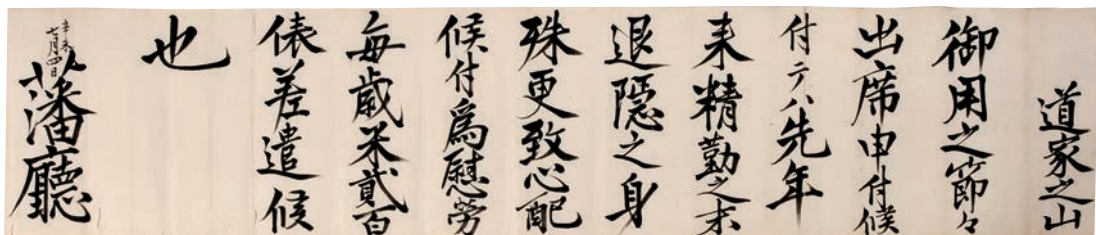 道家之山
御用之節々
出席申付候
付テハ先年
来精勤之末
退隠之身
殊更致心配
候付為慰勞
毎歳米貳百
俵差遣候
也
辛未
七月四日
藩廳